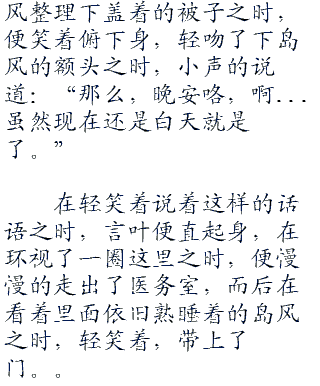 风整理下盖着的被子之时，
便笑着俯下身，轻吻了下岛
风的额头之时，小声的说
道：“那么，晚安咯，啊...
虽然现在还是白天就是
了。”
在轻笑着说着这样的话
语之时，言叶便直起身，在
环视了一圈这里之时，便慢
慢的走出了医务室，而后在
看着里面依旧熟睡着的岛风
之时，轻笑着，带上了
门。。